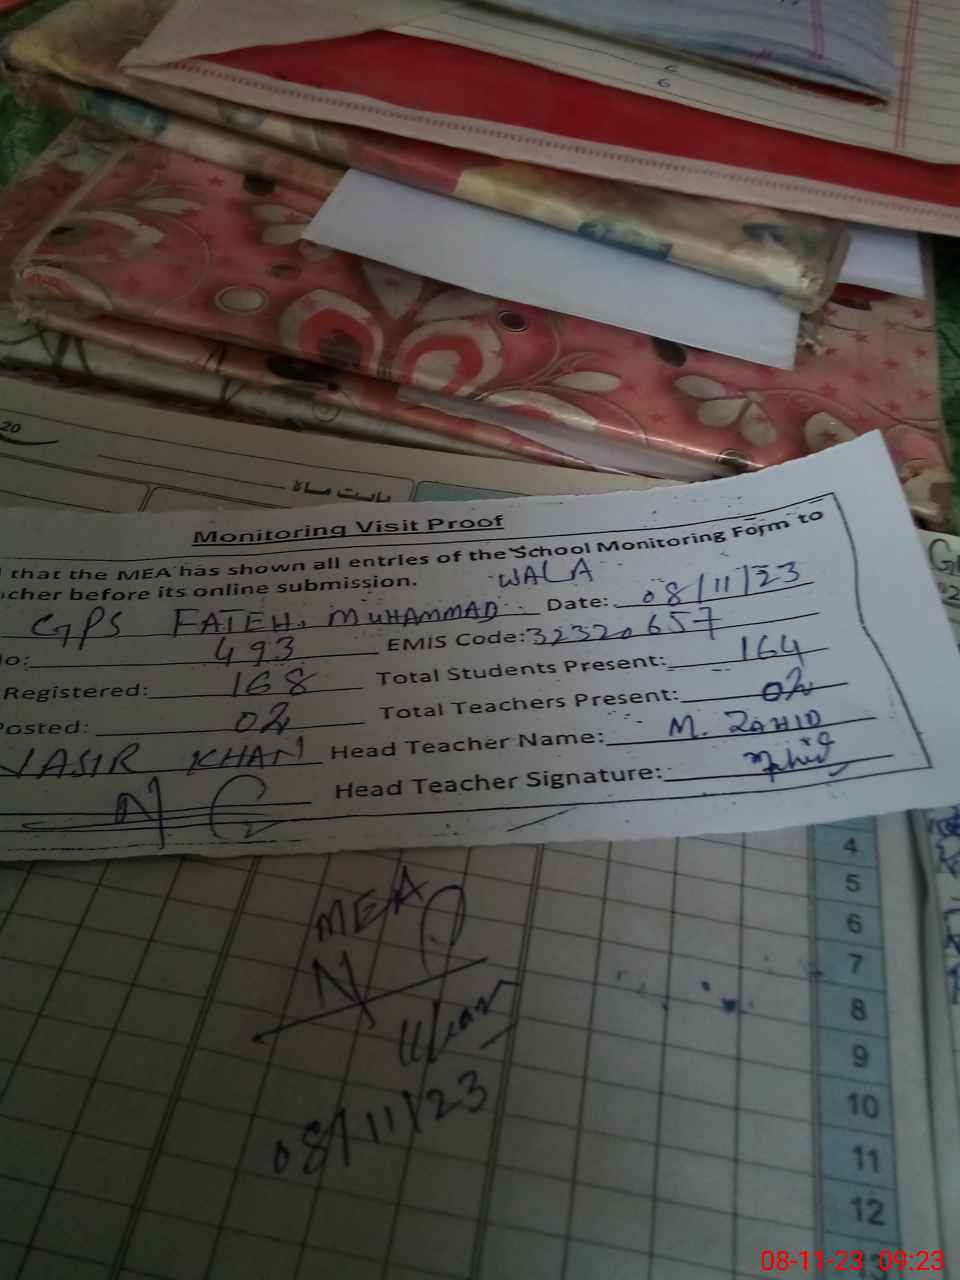 6
6
20
بابت ماہ
Monitoring Visit Proof
that the MEA has shown all entries of the School Monitoring Form to
cher before its online submission.
WALA
GPS FATEH MUHAMMAD Date: 08/11/23
o: 493 EMIS Code: 32320657
Registered: 168 Total Students Present: 164
Posted: 02 Total Teachers Present: 02
YASIR KHAN Head Teacher Name: M. ZAHID
Head Teacher Signature:
4
5
MEA
6
7
8
9
10
08/11/23
11
12
08-11-23 09:23